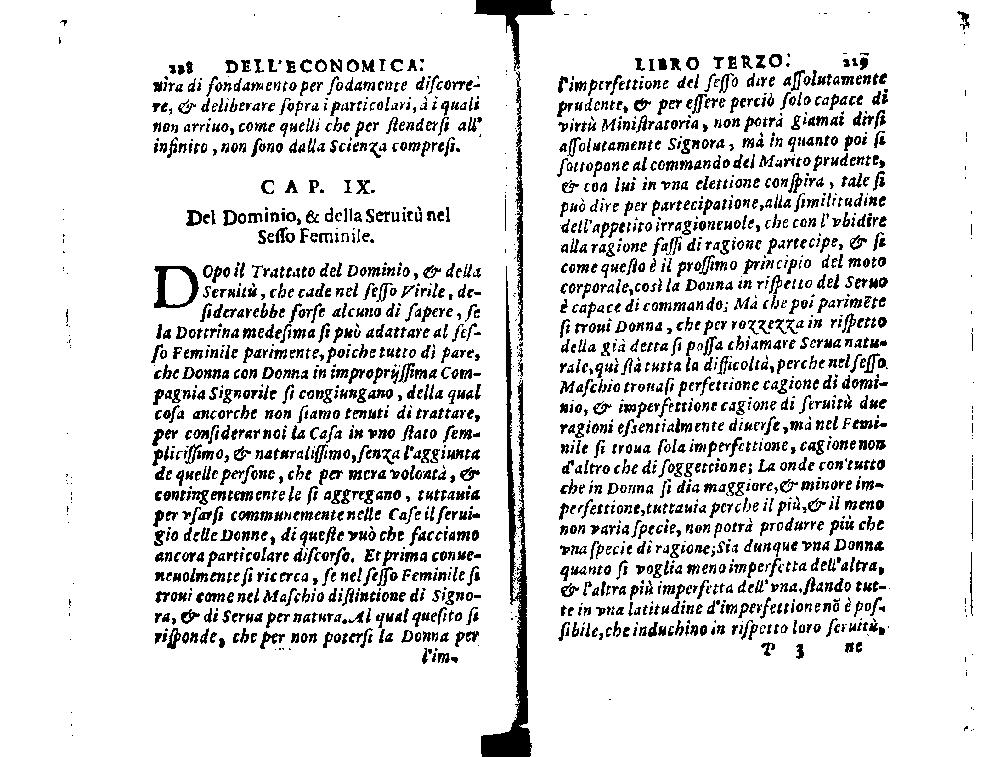 228 DELL'ECONOMICA.
nira di fondamento per sodamente discorre-
re, & deliberare sopra i particolari, à i quali
non arriuo, come quelli che per stendersi all'
infinito, non sono dalla Scienza compresi.
CAP. IX.
Del Dominio, & della Seruitù nel
Sesso Feminile.
DOpo il Trattato del Dominio, & della
Seruitù, che cade nel sesso Virile, de-
siderarebbe forse alcuno di sapere, se
la Dottrina medesima si può adattare al ses-
so Feminile parimente, poiche tutto dì pare,
che Donna con Donna in improprijssima Com-
pagnia Signorile si congiungano, della qual
cosa ancorche non siamo tenuti di trattare,
per considerar noi la Casa in vno stato sem-
plicissimo, & naturalissimo, senza l'aggiunta
de quelle persone, che per mera volontà, &
contingentemente le si aggregano, tuttauia
per vsarsi communemente nelle Case il serui-
gio delle Donne, di queste vuò che facciamo
ancora particolare discorso. Et prima conue-
neuolmente si ricerca, se nel sesso Feminile si
troui come nel Maschio distintione di Signo-
ra, & di Serua per natura. Al qual quesito si
risponde, che per non potersi la Donna per
l'im-
LIBRO TERZO. 229
l'imperfettione del sesso dire assolutamente
prudente, & per essere perciò solo capace di
virtù Ministratoria, non potrà giamai dirsi
assolutamente Signora, mà in quanto poi si
sottopone al commando del Marito prudente,
& con lui in vna elettione conspira, tale si
può dire per partecipatione, alla similitudine
dell'appetito irragioneuole, che con l'vbidire
alla ragione fassi di ragione partecipe, & si
come questo è il prossimo principio del moto
corporale, così la Donna in rispetto del Seruo
è capace di commando; Mà che poi parimēte
si troui Donna, che per rozzezza in rispetto
della già detta si possa chiamare Serua natu-
rale, quì stà tutta la difficoltà, perche nel sesso
Maschio trouasi perfettione cagione di domi-
nio, & imperfettione cagione di seruitù due
ragioni essentialmente diuerse, mà nel Femi-
nile si troua sola imperfettione, cagione non
d'altro che di soggettione; La onde con tutto
che in Donna si dia maggiore, & minore im-
perfettione, tuttauia perche il più, & il meno
non varia specie, non potrà produrre più che
vna specie di ragione; Sia dunque vna Donna
quanto si voglia meno imperfetta dell'altra,
& l'altra più imperfetta dell'vna, stando tut-
te in vna latitudine d'imperfettione nō è pos-
sibile, che induchino in rispetto loro seruitù,
P 3 ne